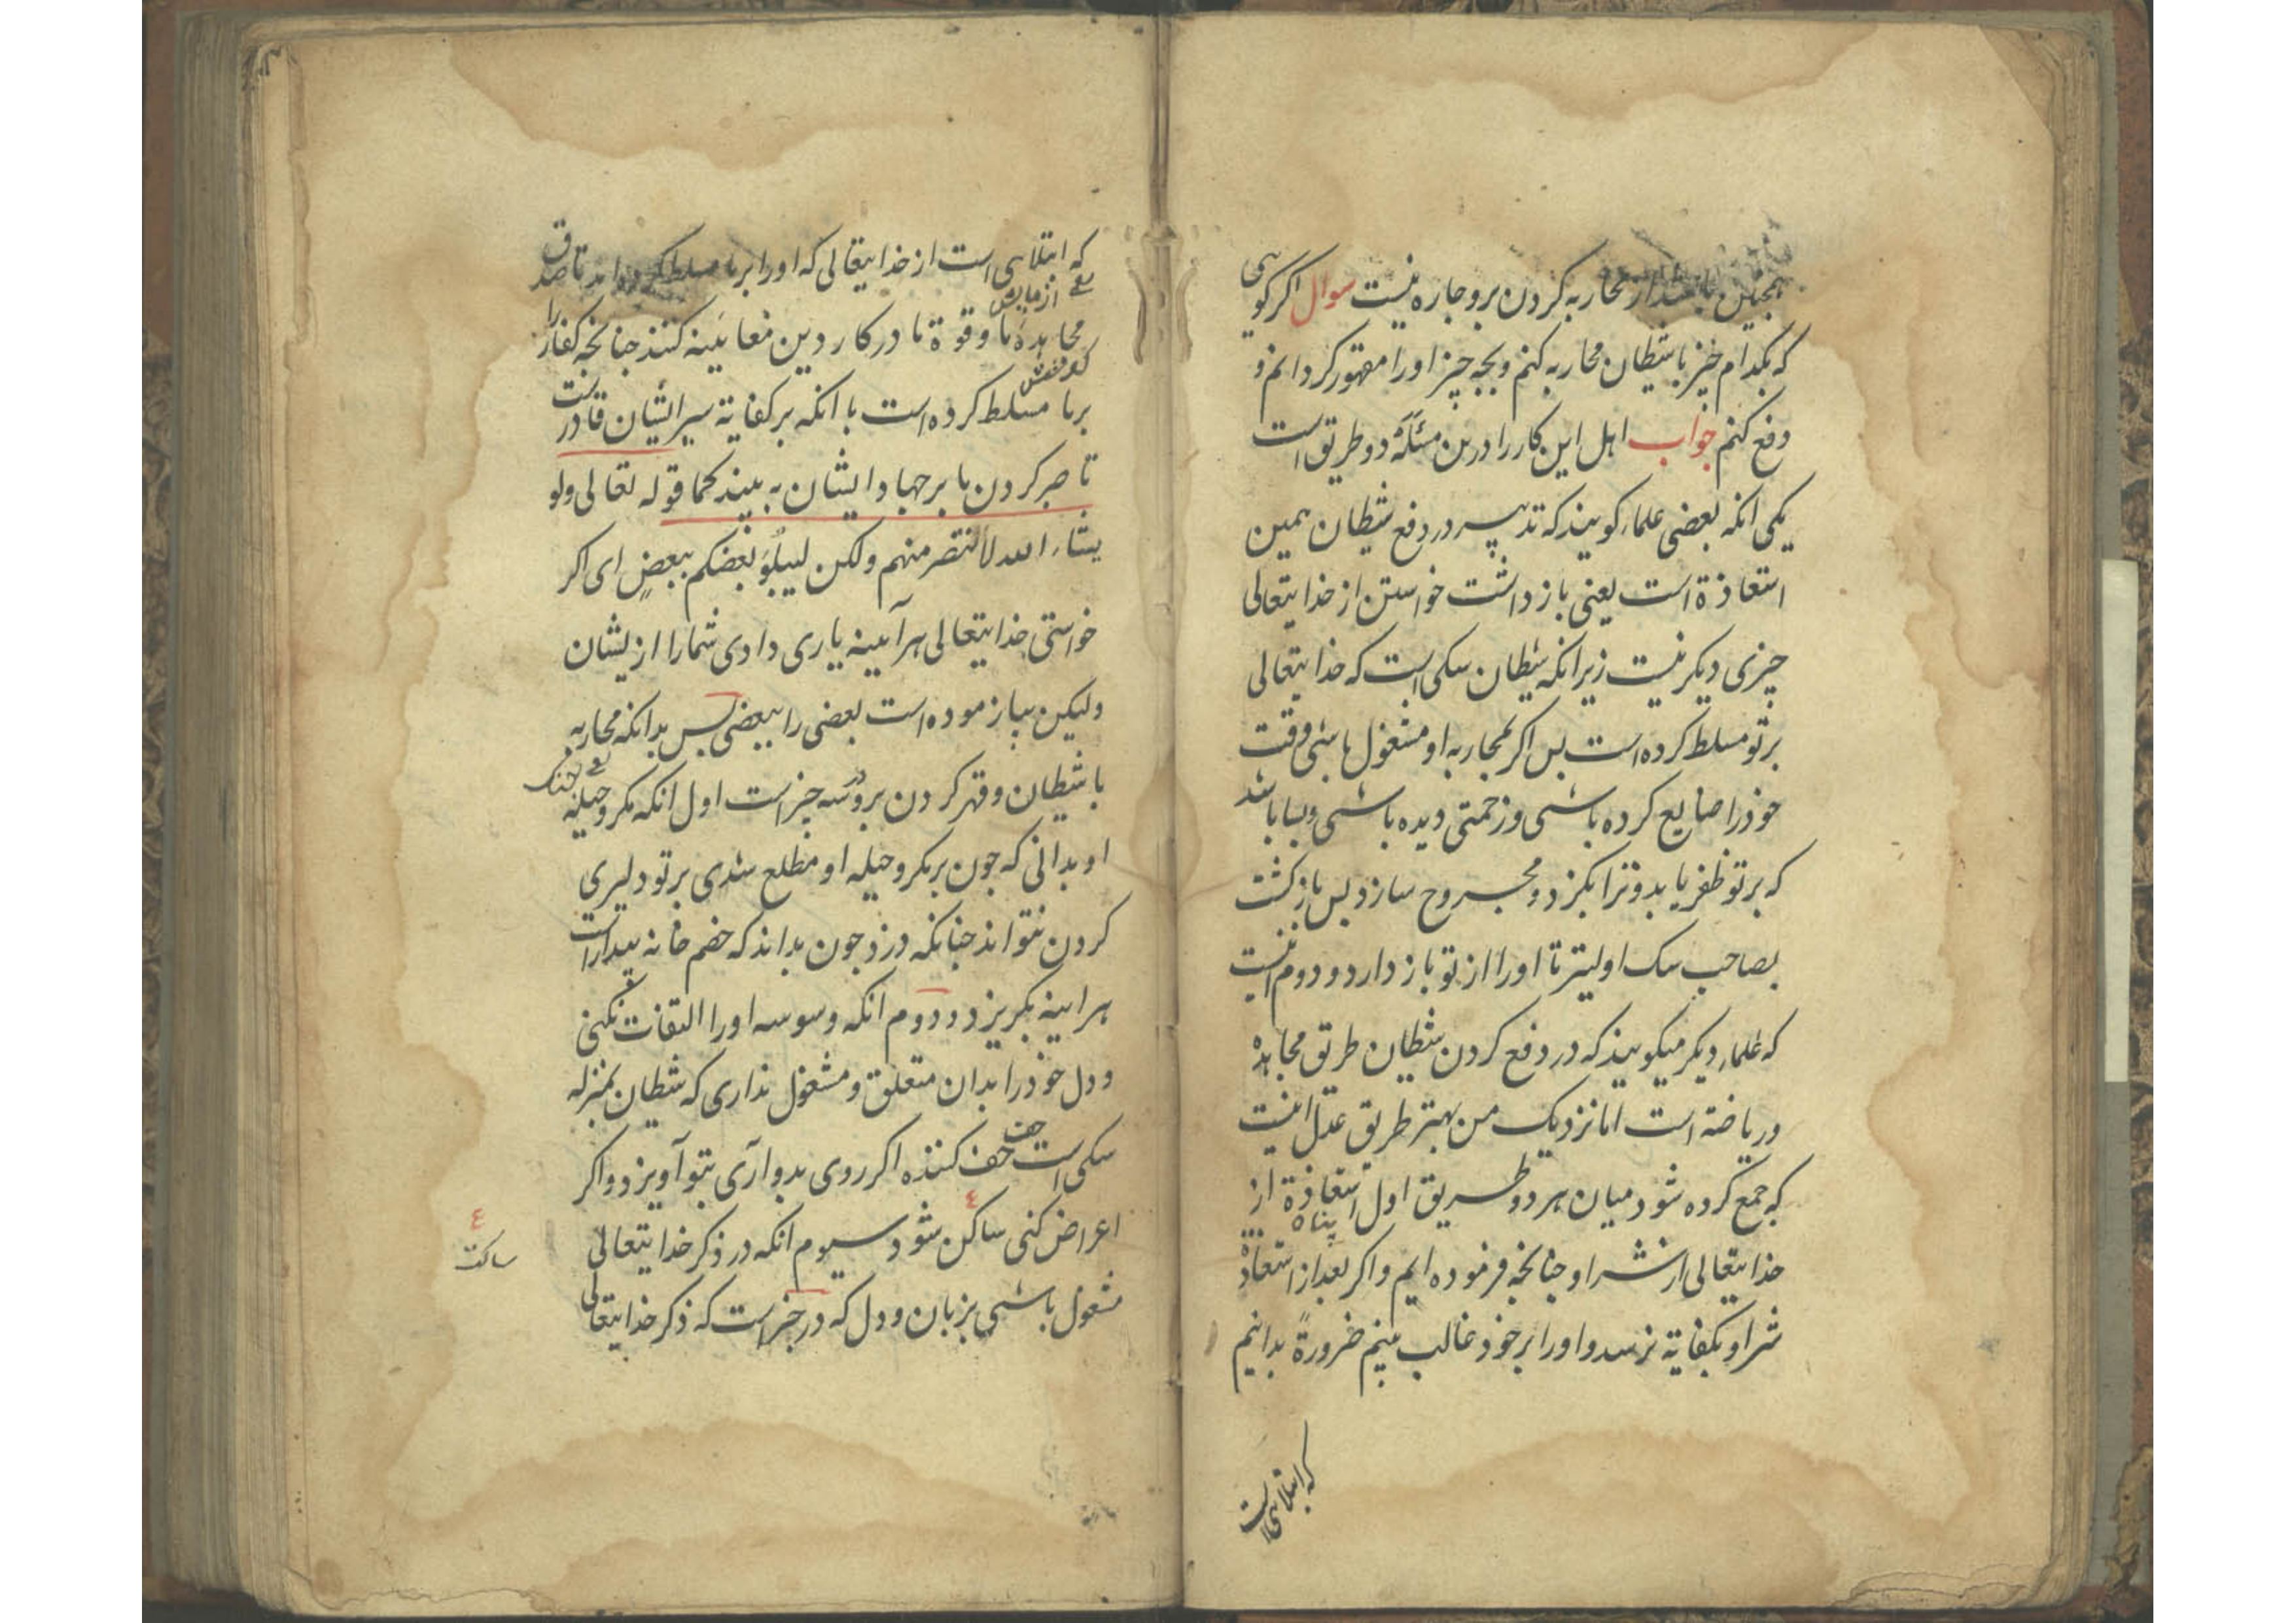 همچنین با شیطان محاربه کردن برو چاره نیست سوال اکر کویی
که بکدام چیز با شیطان محاربه کنم و بچه چیز اورا مقهور کردانم و
دفع کنم جواب اهل این کار را درین مسئلهٔ دو طریق است
یکی انکه بعضی علماء کویند که تدبیر در دفع شیطان همین
استعاذة است یعنی باز داشت خواستن از خدایتعالی
چیزی دیکر نیست زیرانکه شیطان سکی است که خدایتعالی
بر تو مسلط کرده است پس اکر بمحاربه او مشغول باشی وقت
خودرا ضایع کرده باشی و زحمتی دیده باشی و بسا باشد
که بر تو ظفر یابد و ترا بکزد و مجروح سازد پس بازکشت
بصاحب سک اولیتر تا اورا از تو باز دارد و دوم انیست
که علماء دیکر میکویند که در دفع کردن شیطان طریق مجاهده
و ریاضة است اما نزدیک من بهتر طریق عدل اینست
که جمع کرده شود میان هر دو طریق اول استعاذة از
پناه
خدایتعالی از شر او چنانچه فرموده ایم و اکر بعد از استعاذة
شر او بکفایة نرسد و اورا بر خود غالب بینم ضرورةً بدانیم
که ابتلایی است
که ابتلایی است از خدایتعالی که اورا بر ما مسلط کرداند تا صدق
یعنی ازمایش
مجاهدهٔ ما و قوة ما در کار دین معاینه کنند چنانچه کفار را
بر ما مسلط کرده است با انکه بر کفایة سر ایشان قادرست
تا صبر کردن ما بر جهاد ایشان به بیند کما قوله تعالی ولو
یشاء الله لانتصر منهم ولکن لیبلُوَ بعضکم ببعضٍ ای اکر
خواستی خدایتعالی هرآیینه یاری دادی شمارا از یشان
ولیکن بیازموده است بعضی را ببعضی پس بدانکه محاربه
یعنی جنک
با شیطان و قهر کردن برو در سه چیز است اول انکه مکر و حیله
او بدانی که چون بر مکر و حیله او مطلع شدی بر تو دلیری
کردن نتواند چنانکه دزد چون بداند که خصم خانه بیدار است
هرایینه بکریزد و دوم انکه وسوسه اورا التفات نکنی
و دل خودرا بدان متعلق و مشغول نداری که شطان بمنزله
سکی است حف حف کننده اکر روی بدو آری بتو آویزد و اکر
اعراض کنی ساکن شود سیوم انکه در ذکر خدایتعالی
ساکت
مشغول باشی بزبان و دل که در خبر است که ذکر خدایتعالی